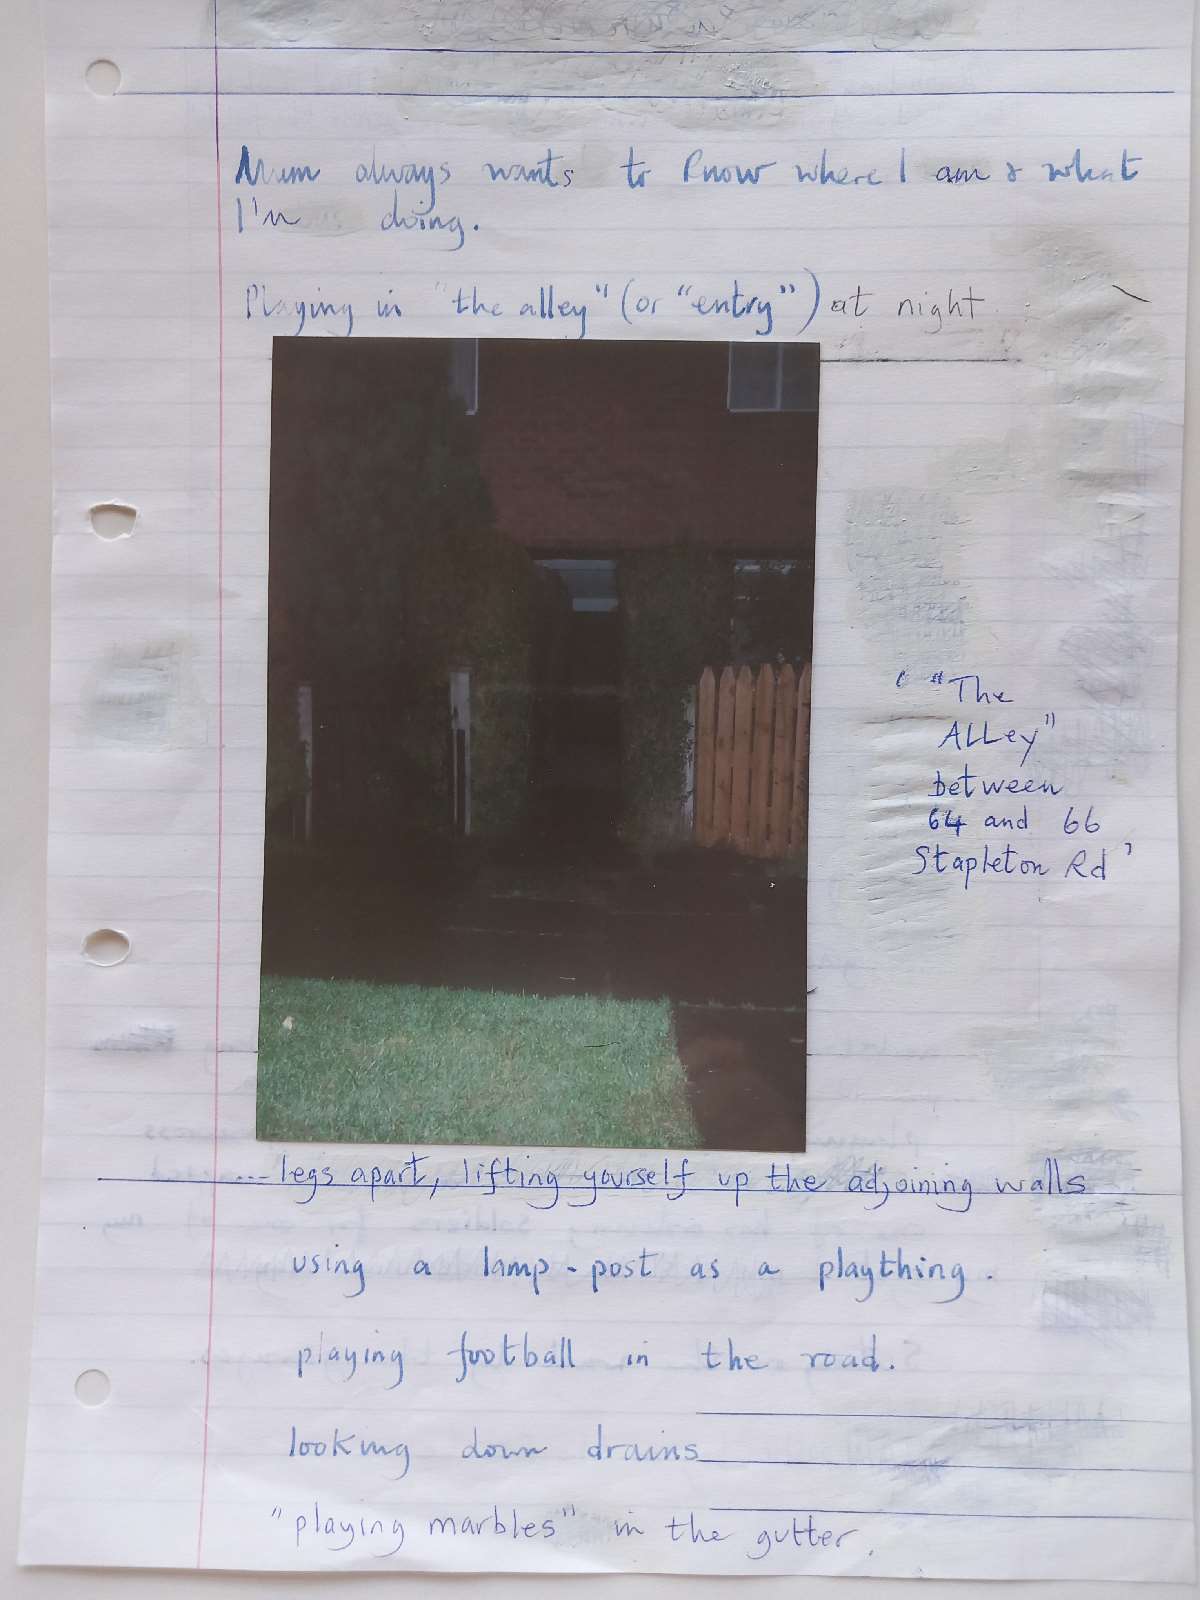 Mum always wants to know where I am & what
I'm doing.
Playing in "the alley" (or "entry") at night
' "The
ALLey"
between
64 and 66
Stapleton Rd '
... legs apart, lifting yourself up the adjoining walls
using a lamp-post as a plaything.
playing football in the road.
looking down drains
"playing marbles" in the gutter.